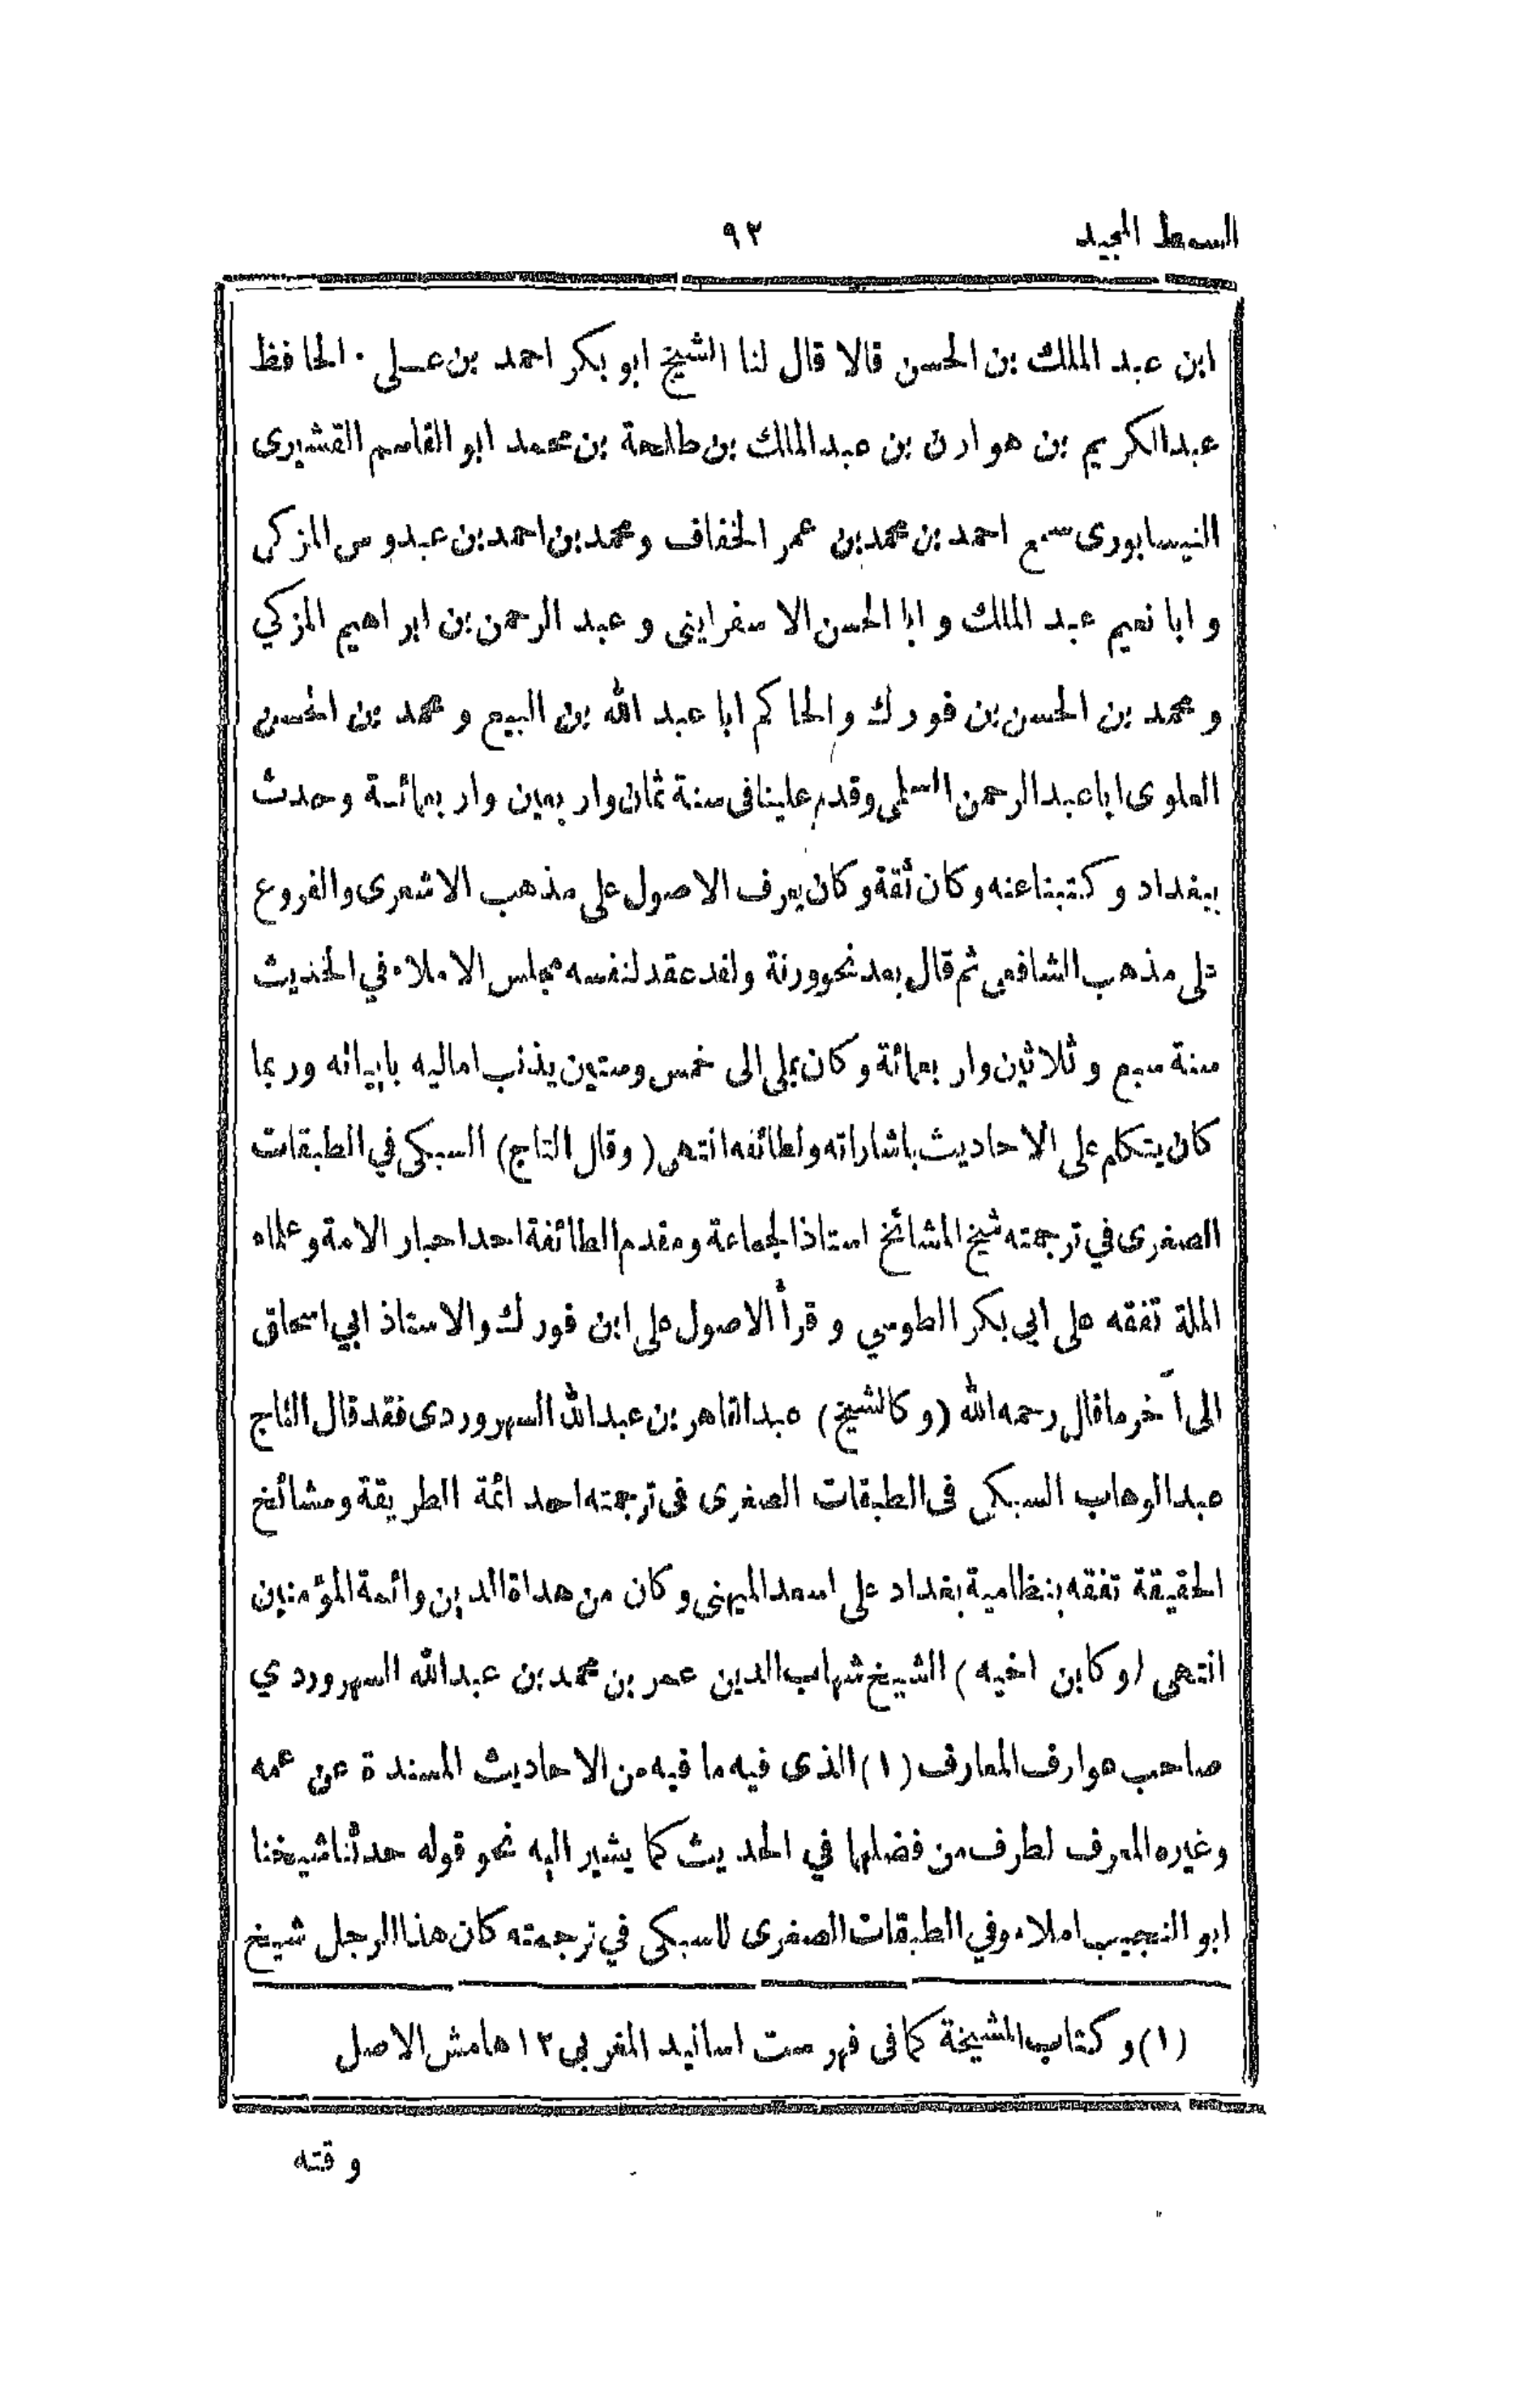 السمط المجيد
٩٢
ابن عبد الملك بن الحسن قالا قال لنا الشيخ ابو بكر احمد بن عـلى . الحافظ
عبدالكريم بن هوازن بن عبدالملك بن طلحة بن محمد ابو القاسم القشيرى
النيسابورى سمع احمد بن محمد بن عمر الخفاف ومحمد بن احمد بن عبدوس المزكى
و ابا نعيم عبد الملك و ابا الحسن الاسفراينى و عبد الرحمن بن ابراهيم المزكي
و محمد بن الحسن بن فورك والحاكم ابا عبد الله بن البيع و محمد بن الحسن
العلوى ابا عبد الرحمن السلمى وقدم علينا فى سنة ثمان واربعين واربعمائة وحدث
ببغداد وكتبنا عنه وكان ثقة وكان يعرف الاصول على مذهب الاشعرى والفروع
على مذهب الشافعى ثم قال بعد نحو ورقة ولقد عقد لنفسه مجلس الاملاء في الحديث
سنة سبع و ثلاثين واربعمائة وكان يملى الى خمس وستين يذنب اماليه بابياته وربما
كان يتكلم على الاحاديث باشاراته ولطائفه انتهى (وقال التاج) السبكى في الطبقات
الصغرى في ترجمته شيخ المشائخ استاذ الجماعة ومقدم الطائفة احد احبار الامة وعلماء
الملة تفقه على ابي بكر الطوسي و قرأ الاصول على ابن فورك والاستاذ ابي اسحاق
الى آخر ما قال رحمه الله (وكالشيخ) عبد القاهر بن عبدالله السهروردى فقد قال التاج
عبدالوهاب السبكى فى الطبقات الصغرى فى ترجمته احد ائمة الطريقة ومشائخ
الحقيقة تفقه بنظامية بغداد على اسعد الميهنى وكان من هداة الدين وائمة المؤمنين
انتهى (وكابن اخيه) الشيخ شهاب الدين عمر بن محمد بن عبدالله السهروردي
صاحب عوارف المعارف (١) الذى فيه ما فيه من الاحاديث المسندة عن عمه
وغيره المعرف لطرف من فضلها في الحديث كما يشير اليه نحو قوله حدثنا شيخنا
ابو النجيب املاء وفي الطبقات الصغرى للسبكى في ترجمته كان هذا الرجل شيخ
(١) وكتاب المشيخة كما فى فهرست اسانيد المغربي ١٢ هامش الاصل
وقته